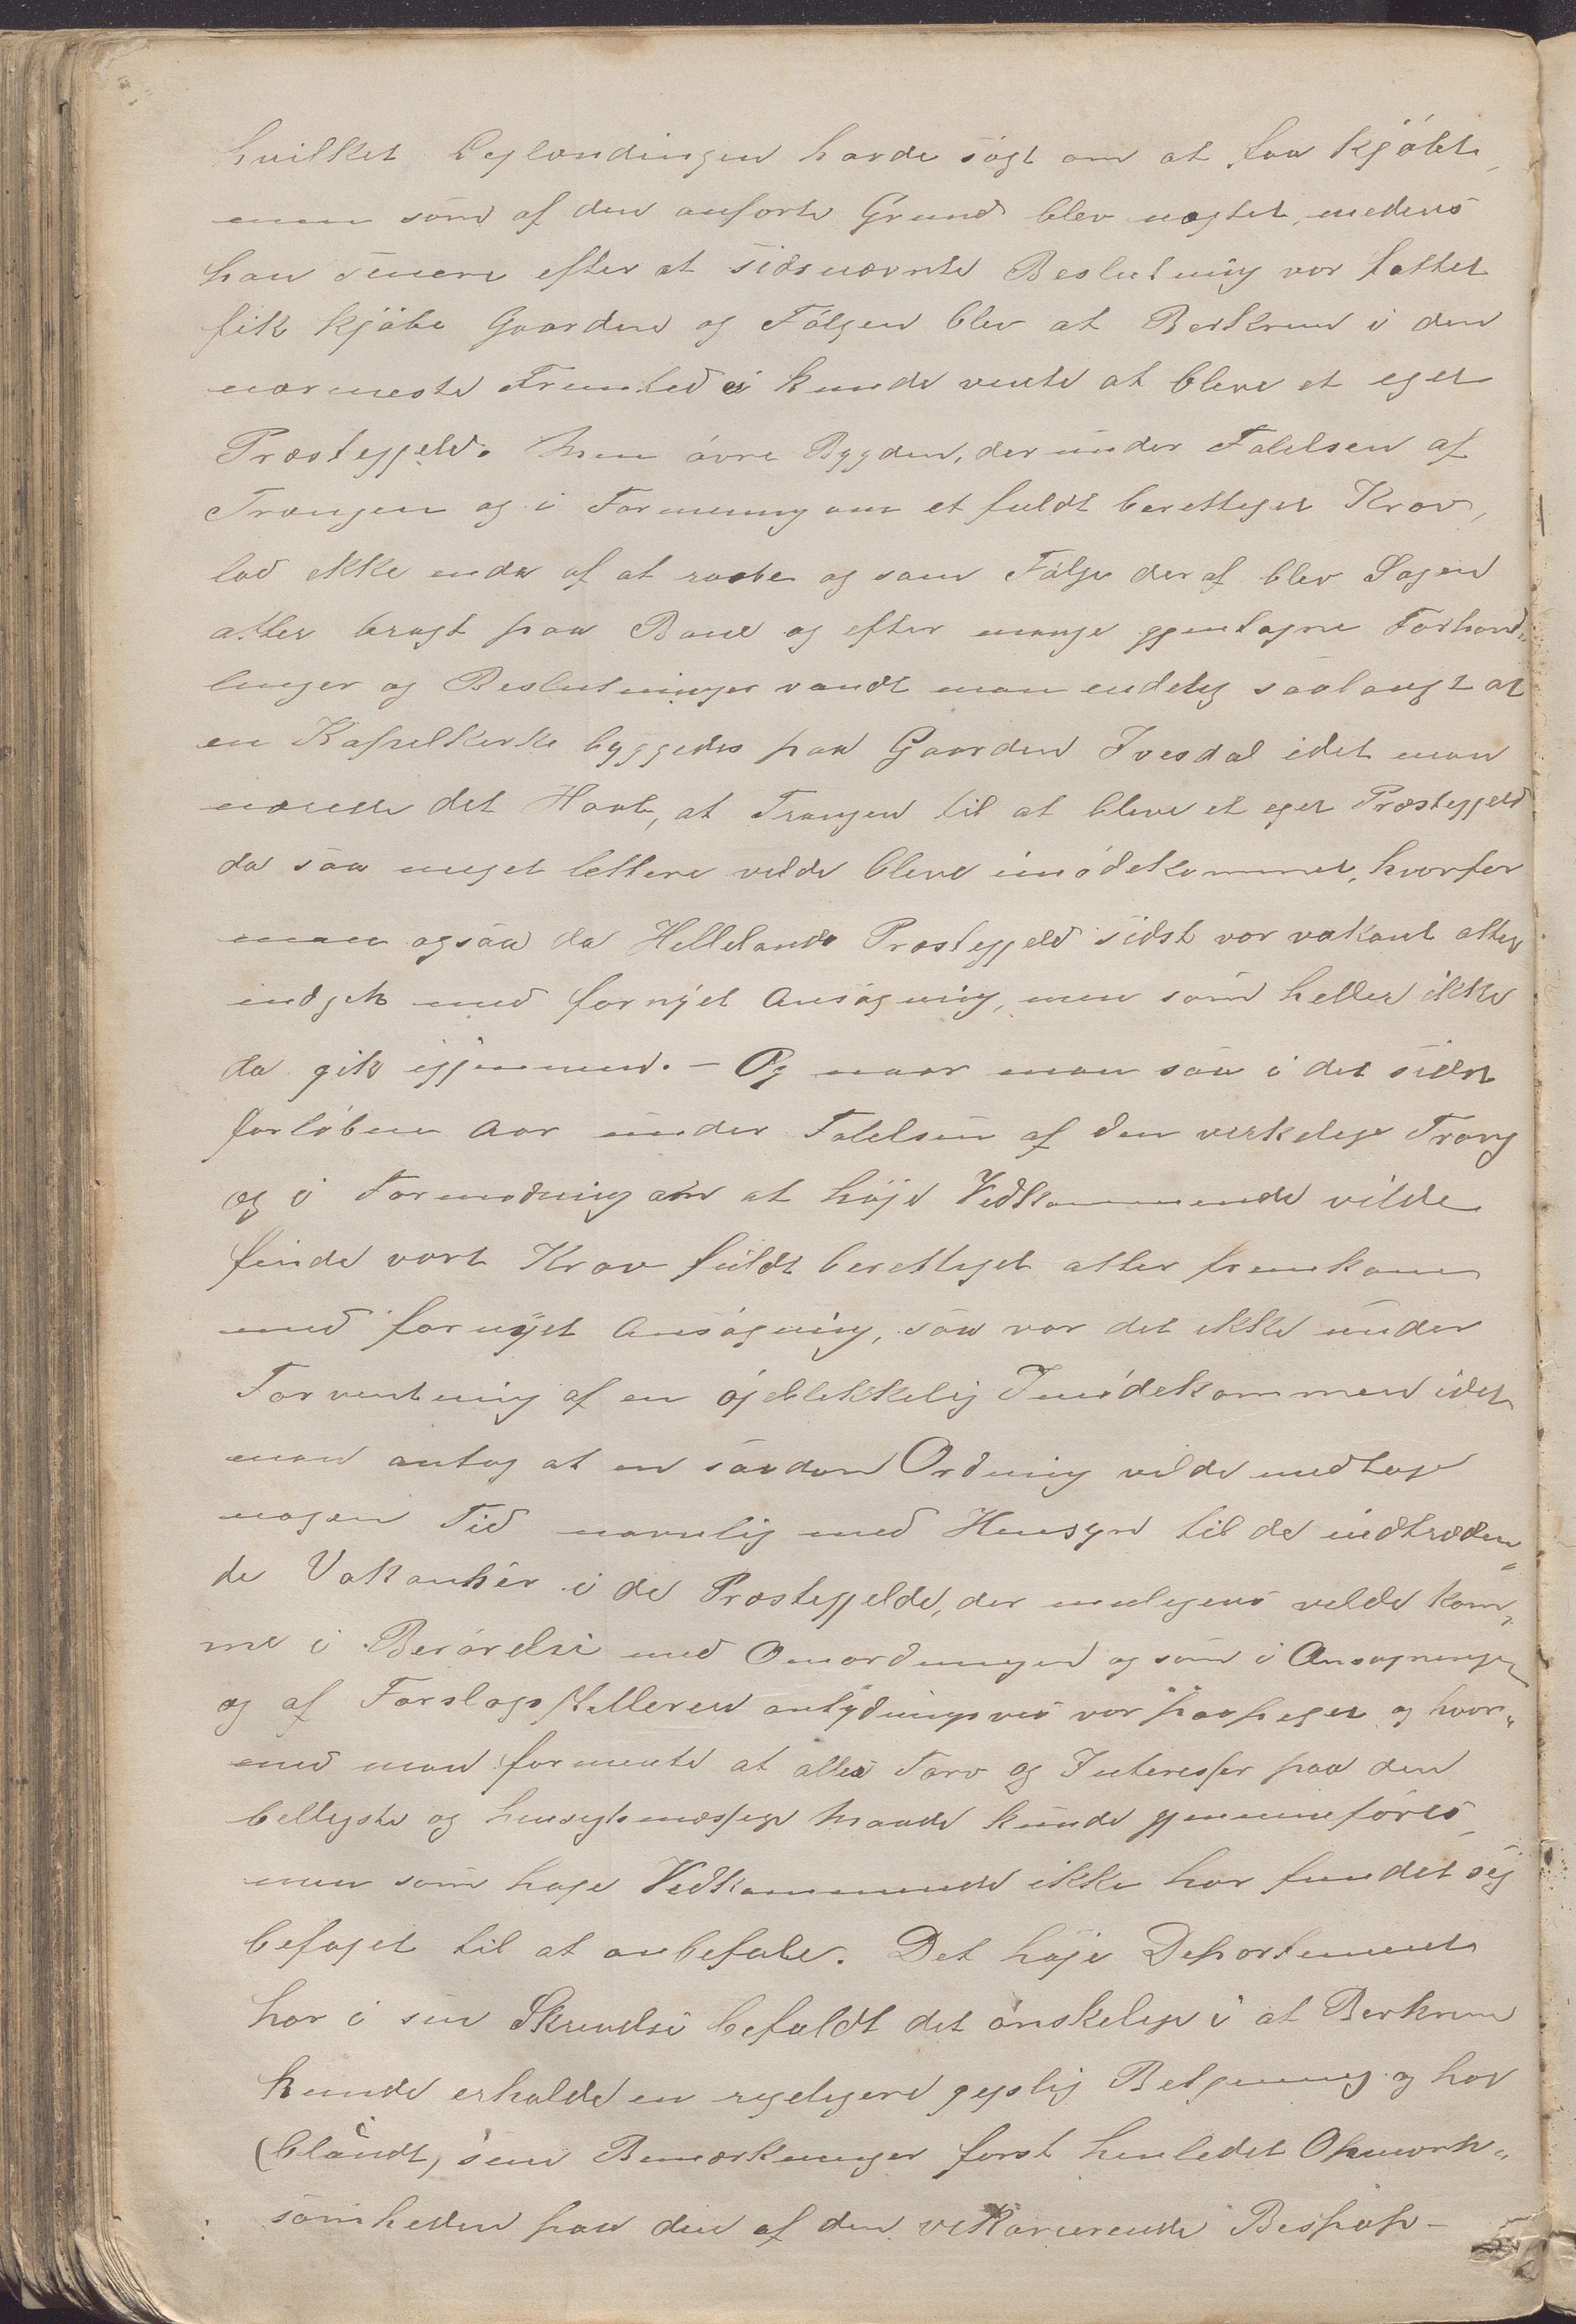 hvilket Leglændingen havde søgt om at faa kjøbt,
men som af den anførte Grund blev nægtet, medens
han senere efter at sidsnævnte Beslutning var fattet
fik kjøbe Gaarden og Følgen blev at Berkrem i den
nærmeste Fremtid ei kunde vente at blive et eget
Præstegjeld. Men øvre Bygden, der under Følelsen af
Trangen og i Formening om et fuldt berettiget Krav,
lod ikke enda af at raabe og som Følge deraf blev Sagen
atter bragt paa Bane og efter mange gjentagne Forhand„
linger og Beslutninger vandt man endelig saalangt at
en Kapelkirke byggedes paa Gaarden Ivesdal idet man
nærede det Haab, at Trangen til at blive et eget Præstegjeld
da saa meget lettere vilde blive imødekommet, hvorfor
man ogsaa da Hellelands Præstegjeld sidst var vakant atter
indgik med fornyet Ansøgning, men som heller ikke
da gik igjennem. – Og naar man saa i det sidst
forløbne Aar under Følelsen af den verkelige Trang
og i Formodning om at høje Vedkommende vilde
finde vort Krav fuldt berettiget atter fremkom
med fornyet Ansøgning, saa var det ikke under
Forventning af en øjeblikkelig Imødekommen idet
man antog at en saadan Ordning vilde medtage
nogen Tid navnlig med Hensyn til de indtræden„
de Vakanser i de Præstegjelde, der muligens vilde kom„
me i Berørelse med Omordningen og som i Ansøgningen
og af Forslagsstilleren antydningsvis var paapeget og hvor„
med man formente at alles Tarv og Interesser paa den
billigste og hensigtsmæssige Maade kunde gjennemføres,
men som høje Vedkommende ikke har fundet sig
beføjet til at anbefale. Det høje Departement
har i sin Skrivelse befaldt det ønskelige i at Berkrem
kunde erholde en rigeligere gejstlig Betjening og har
(blandt) sine Bemærkninger først henledet Opmærk„
somheden paa den af den vikarierende Biskop-